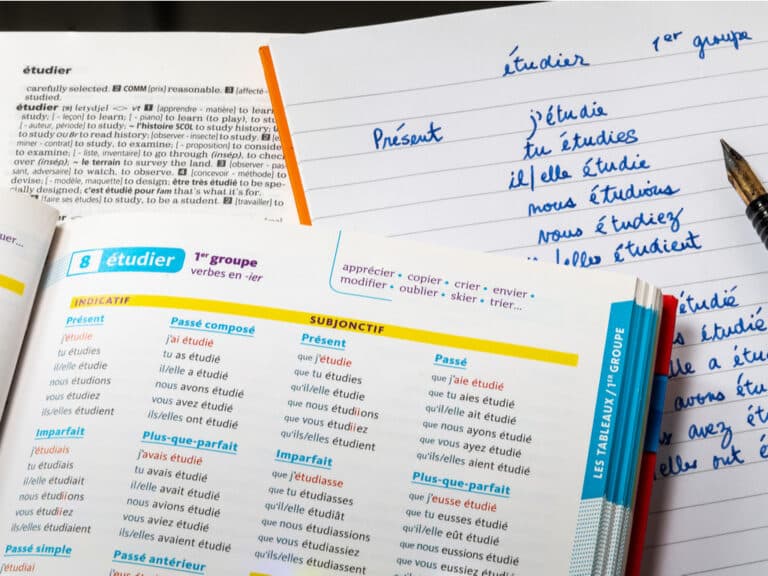 étudier
carefully selected. 2 COMM [prix] reasonable. 3 [affecté
studied.
étudier [etydje] vt 1 [apprendre - matière] to learn
study; [- leçon] to learn; [- piano] to learn (to play), to stu
[- auteur, période] to study; ~ l'histoire SCOL to study history;
to study ou to read history; [observer - insecte] to study. 2
miner - contrat] to study, to examine; [- proposition] to conside
to examine; [- liste, inventaire] to go through (insép), to chec
over (insép); ~ le terrain to survey the land. 3 [observer - pas
sant, adversaire] to watch, to observe. 4 [concevoir - méthode] to
devise; [- modèle, maquette] to design; être très étudié to be spe
cially designed; c'est étudié pour fam that's what it's for.
[faire ses études] to study, to be a student. 2 [travailler] to
étudier 1er groupe
Présent
j'étudie
tu étudies
il/elle étudie
nous étudions
vous étudiez
/elles étudient
étudié
étudié
elle a étu
avons étu
avez étu
elles ont é
uer...
8 étudier
1er groupe
verbes en -ier
apprécier • copier • crier • envier •
modifier • oublier • skier • trier...
INDICATIF
SUBJONCTIF
Présent
j'étudie
tu étudies
il/elle étudie
nous étudions
vous étudiez
ils/elles étudient
Passé composé
j'ai étudié
tu as étudié
il/elle a étudié
nous avons étudié
vous avez étudié
ils/elles ont étudié
Présent
que j'étudie
que tu étudies
qu'il/elle étudie
que nous étudiions
que vous étudiiez
qu'ils/elles étudient
Passé
que j'aie étudié
que tu aies étudié
qu'il/elle ait étudié
que nous ayons étudié
que vous ayez étudié
qu'ils/elles aient étudié
Imparfait
j'étudiais
tu étudiais
il/elle étudiait
nous étudiions
vous étudiiez
ils/elles étudiaient
Plus-que-parfait
j'avais étudié
tu avais étudié
il/elle avait étudié
nous avions étudié
vous aviez étudié
ils/elles avaient étudié
Imparfait
que j'étudiasse
que tu étudiasses
qu'il/elle étudiât
que nous étudiassions
que vous étudiassiez
qu'ils/elles étudiassent
Plus-que-parfait
que j'eusse étudié
que tu eusses étudié
qu'il/elle eût étudié
que nous eussions étudié
que vous eussiez étudié
qu'ils/elles eussent étudié
Passé simple
j'étudiai
Passé antérieur
j'eus étudié
LES TABLEAUX / 1ER GROUPE